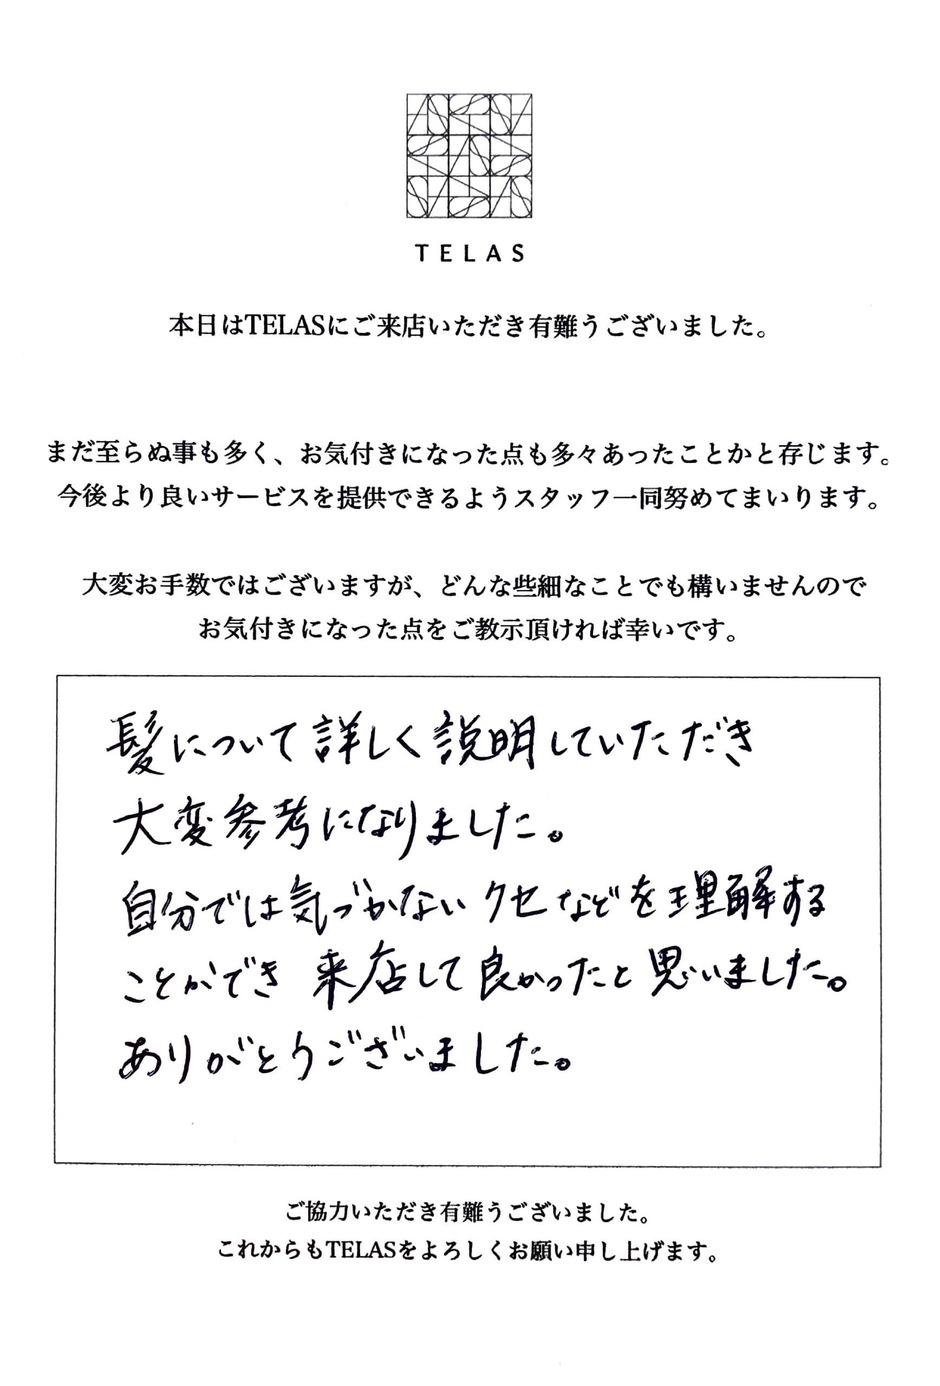 TELAS
本日はTELASにご来店いただき有難うございました。
まだ至らぬ事も多く、お気付きになった点も多々あったことかと存じます。
今後より良いサービスを提供できるようスタッフ一同努めてまいります。
大変お手数ではございますが、どんな些細なことでも構いませんので
お気付きになった点をご教示頂ければ幸いです。
髪について詳しく説明していただき
大変参考になりました。
自分では気づかないクセなどを理解する
ことができ 来店して良かったと思いました。
ありがとうございました。
ご協力いただき有難うございました。
これからもTELASをよろしくお願い申し上げます。